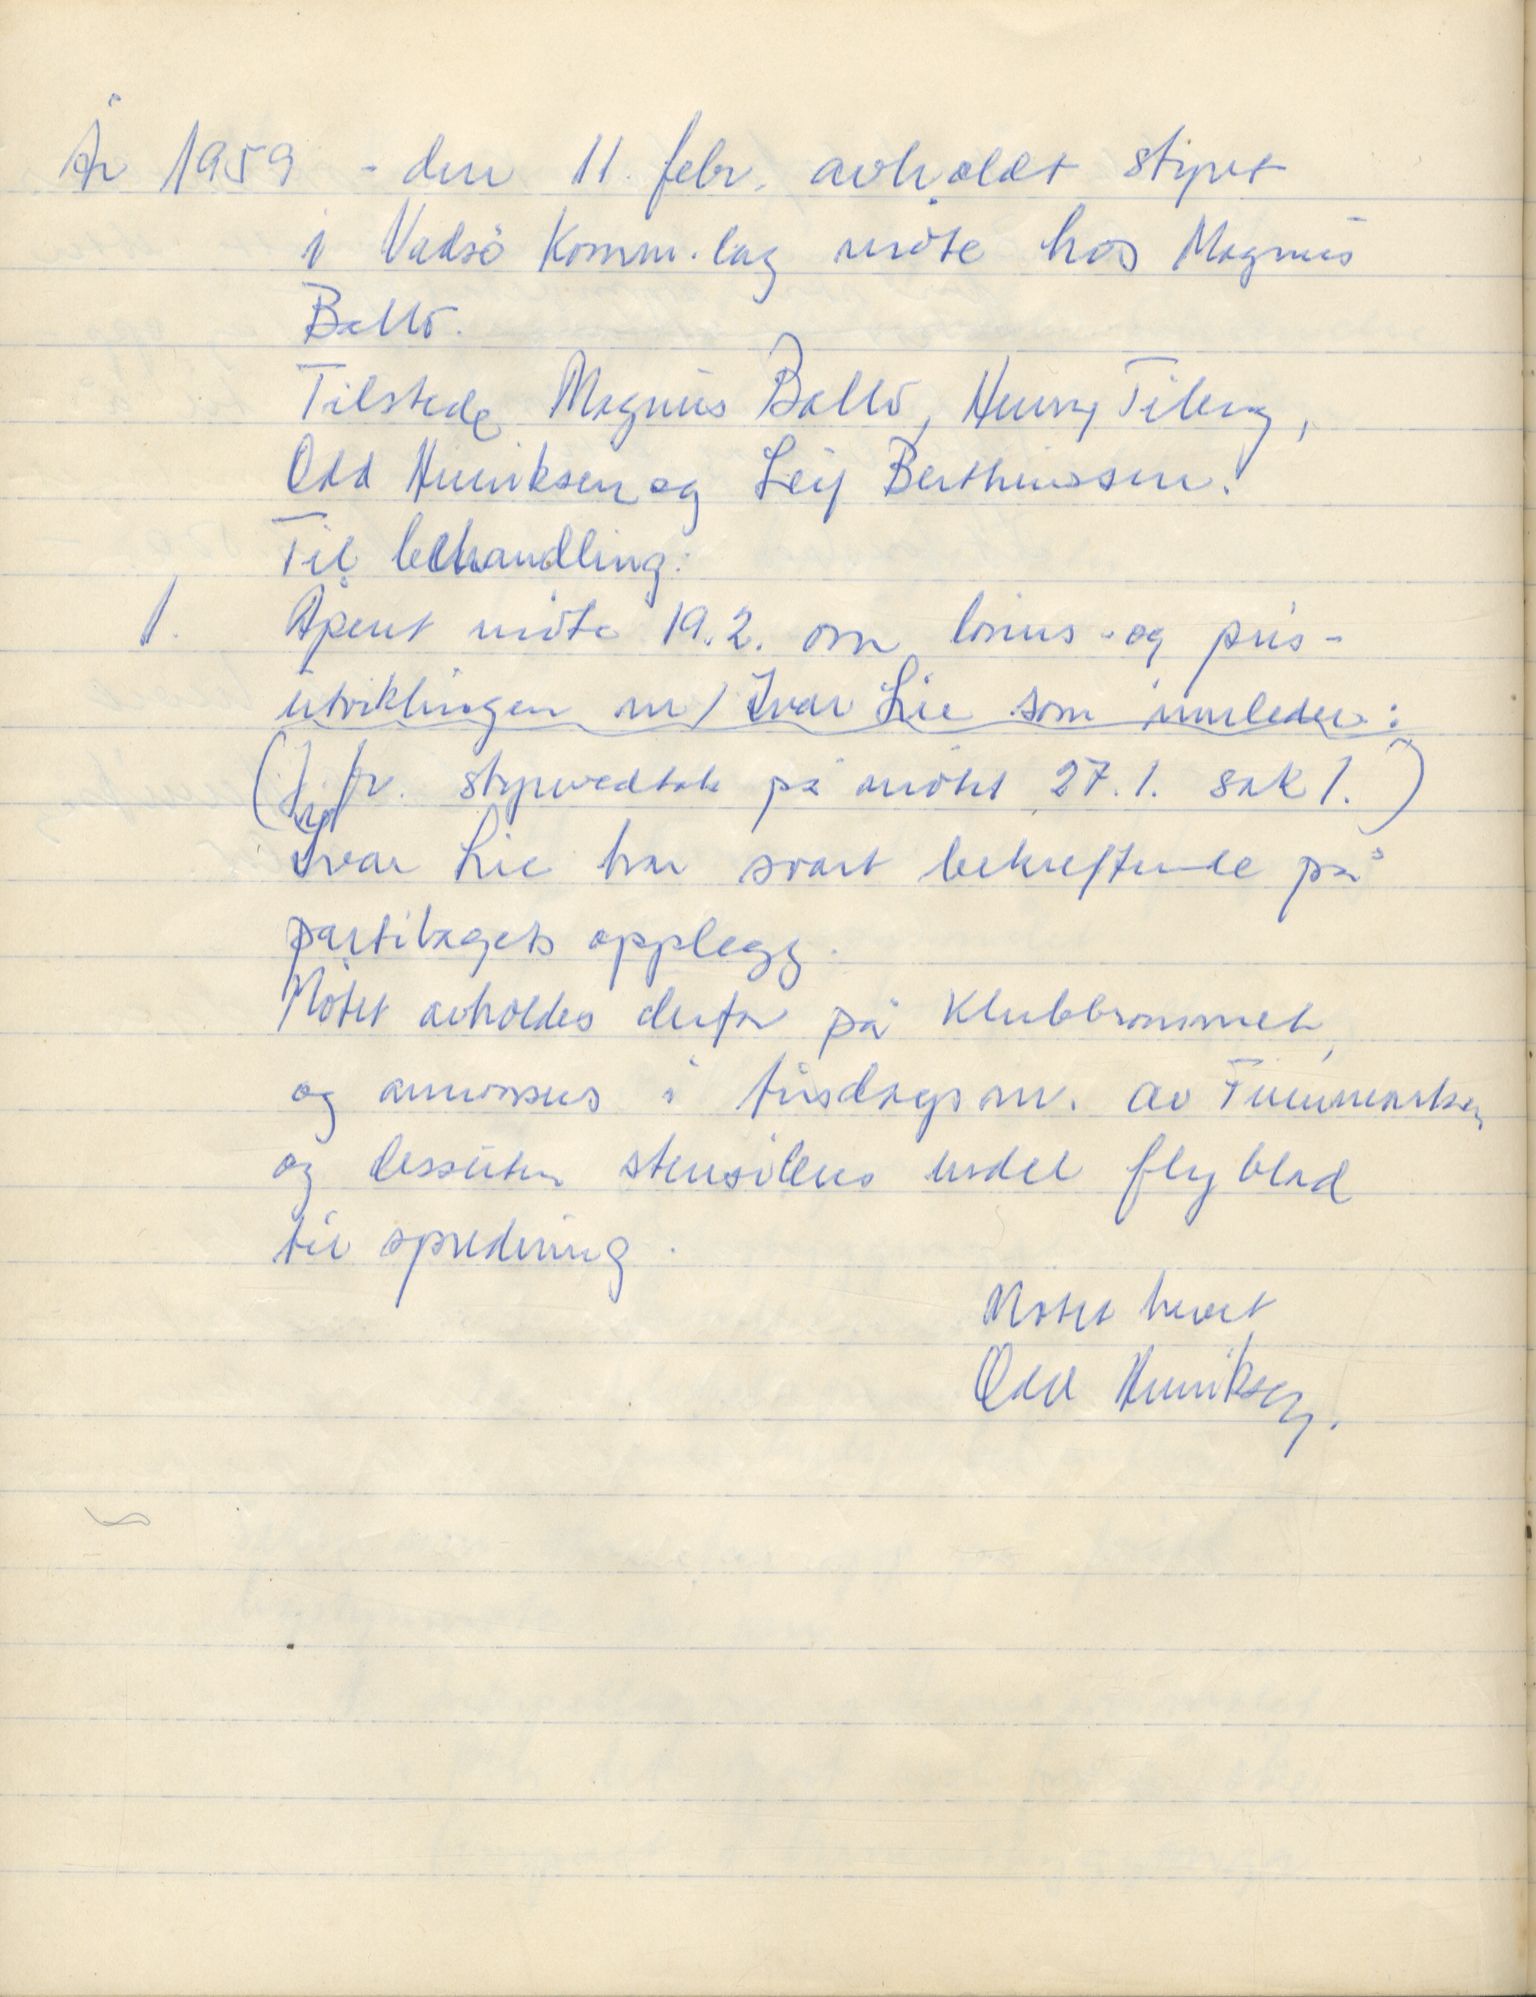 År 1959 - den 11. febr. avholdt styret
i Vadsö Komm.lag möte hos Magnus
Ballo.
Tilstede Magnus Ballo, Henry Tiberg,
Odd Henriksen og Leif Berthinussen.
Til behandling:
1. Åpent möte 19.2. om lönns- og pris-
utviklingen m/ Ivar Lie som innleder:
(Jfr. styrevedtak på mötet 27.1. sak 1.)
Ivar Lie har svart bekreftende på
partilagets opplegg.
Mötet avholdes derfor på Klubbrommet,
og annonses i tirsdagsnr. av Finnmarken
og dessuten stensileres endel flyblad
til spredning.
Mötet hevet
Odd Henriksen.